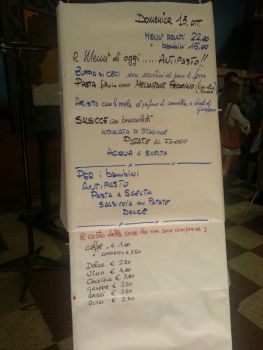 DOMENICA 13, OTT.
MENÙ ADULTI 22,00
" BAMBINI 15,00
IL MENU' DI OGGI ..... ANTIPASTO!!
ZUPPA DI CECI con crostini di pane
PASTA fresca con MELANZANE PECORINO
ARISTA con le mele al profumo di cannella e chiodi di garofano
SALSICCE con broccoletti
INSALATA DI STAGIONE
PATATE AL FORNO
ACQUA A SCELTA
PER I BAMBINI
ANTIPASTO
PASTA A SCELTA
SALSICCIA CON PATATE
DOLCE
Il costo delle cose da non sono comprese:
CAFFE' € 1.00
DOLCE € 2,50
VINO € 4,00
GRAPPE € 2,50
AMARI € 2,50